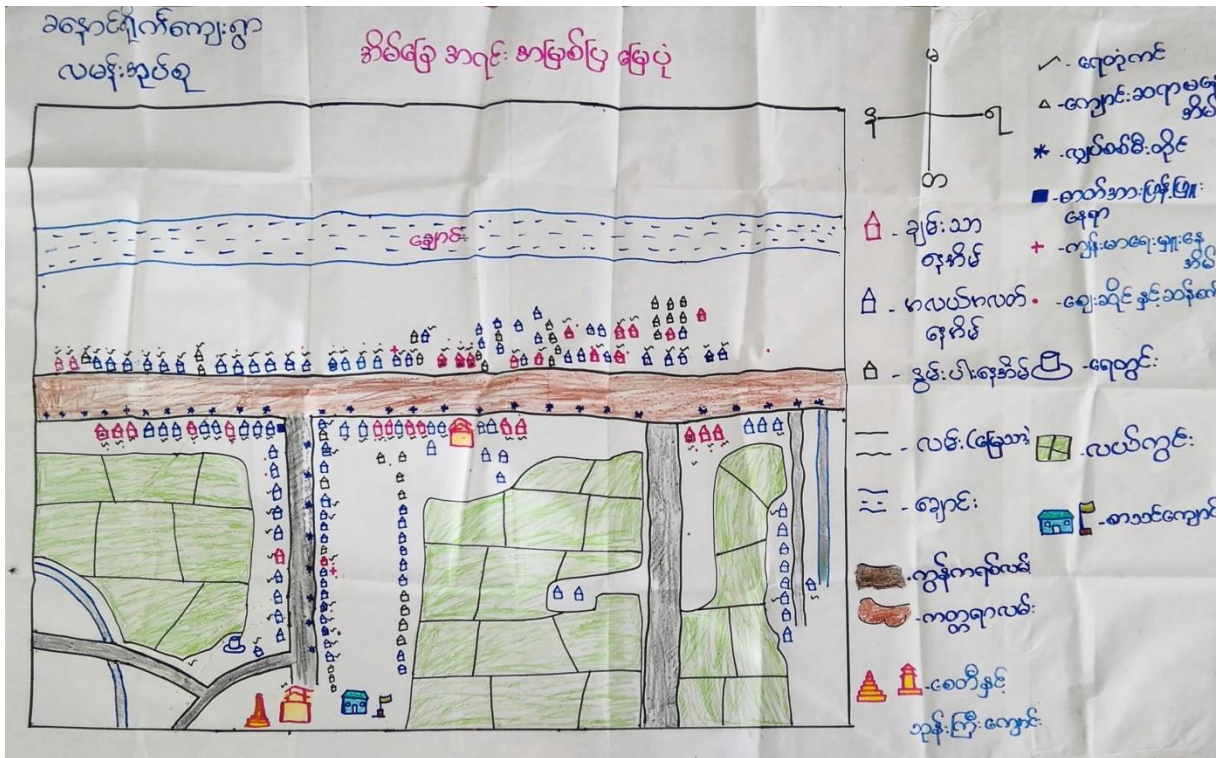 ခနောင်ရိုက်ကျေးရွာ
လမန်းအုပ်စု
အိမ်ခြေ အရင်းအမြစ်ပြ မြေပုံ
ချောင်း
မ
န
ရ
တ
ချမ်းသာ
နေအိမ်
မလယ်မလတ်
နေအိမ်
နွမ်းပါးနေအိမ်
လမ်း(မြေသား)
ချောင်း
ကွန်ကရစ်လမ်း
ကတ္တရာလမ်း
စေတီနှင့်
ဘုန်းကြီးကျောင်း
ရေတုံကင်
ကျောင်းဆရာမနေ
အိမ်
လျှပ်စစ်မီးတိုင်
ဓာတ်အားဖြန့်ဖြူး
နေရာ
ကျန်းမာရေးမှူးနေ
အိမ်
ဈေးဆိုင်နှင့်ဆန်စက်
ရေတွင်း
လယ်ကွင်း
စာသင်ကျောင်း